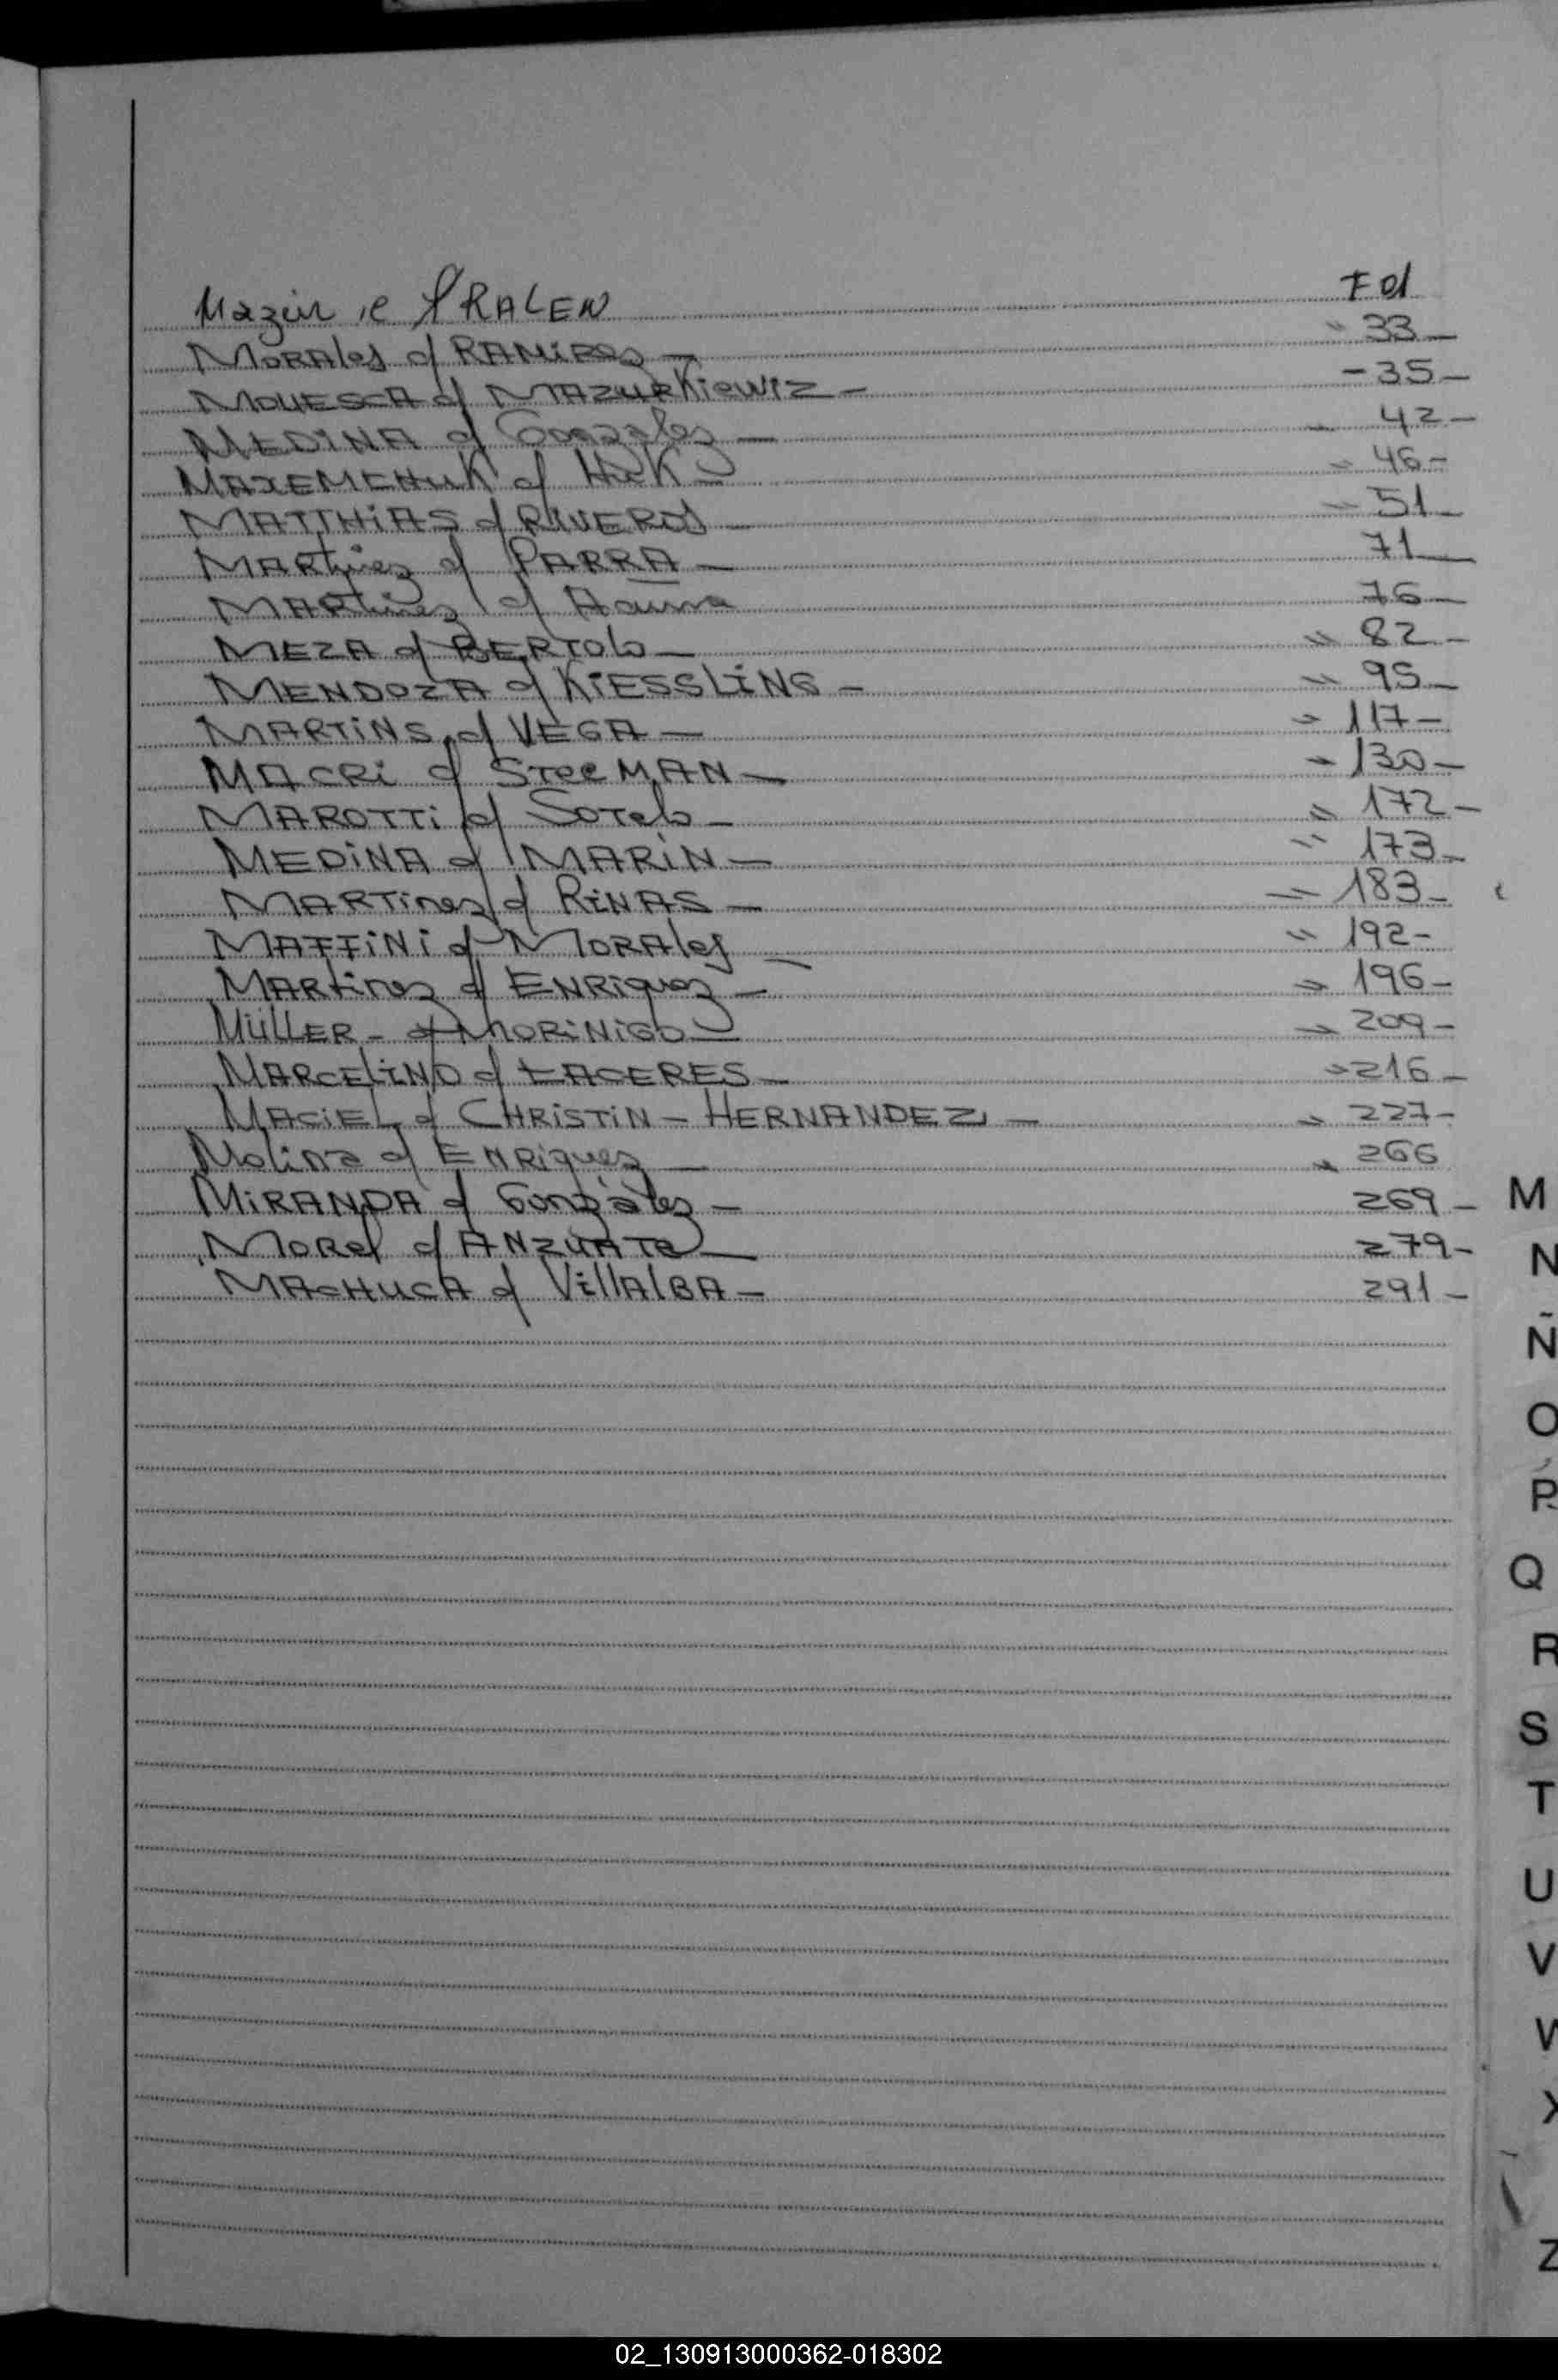 Mazur c/ PRALEN F 01
MORAles c/ RAMIREZ - " 33 -
MOUESCA c/ MAZURKiewiz - - 35 -
MEDINA c/ Gonzalez - " 42 -
MAXEMCHUK c/ HUK - " 46 -
MATTHiAS c/ RIVEROS - " 51 -
MARtinez c/ PARRA - 71 -
MARtinez c/ 76 -
MEZA c/ BERTOLo - " 82 -
MENDOZA c/ KiESSLiNG - " 95 -
MARTiNS c/ VEGA - " 117 -
MACRi c/ STeeMAN - " 130 -
MAROTTi c/ SOTelo - " 172 -
MEDiNA c/ MARiN - " 173 -
MARTinez c/ RiNAS - " 183 -
MAFFiNi c/ MORAles - " 192 -
MARtinez c/ ENRiquez - " 196 -
MÜLLER - c/ MORiNiGO - " 209 -
MARCELiNO c/ CACERES - " 216 -
MACiEL c/ CHRiSTiN - HERNANDEZ - " 227 -
Molina c/ ENRiquez - " 266
MiRANDA c/ Gonzalez - 269 -
MORel c/ ANZUATe - 279 -
MACHUCA c/ VillAlBA - 291 -
M
N
Ñ
O
P
Q
R
S
T
U
V
W
X
Z
02_130913000362-018302